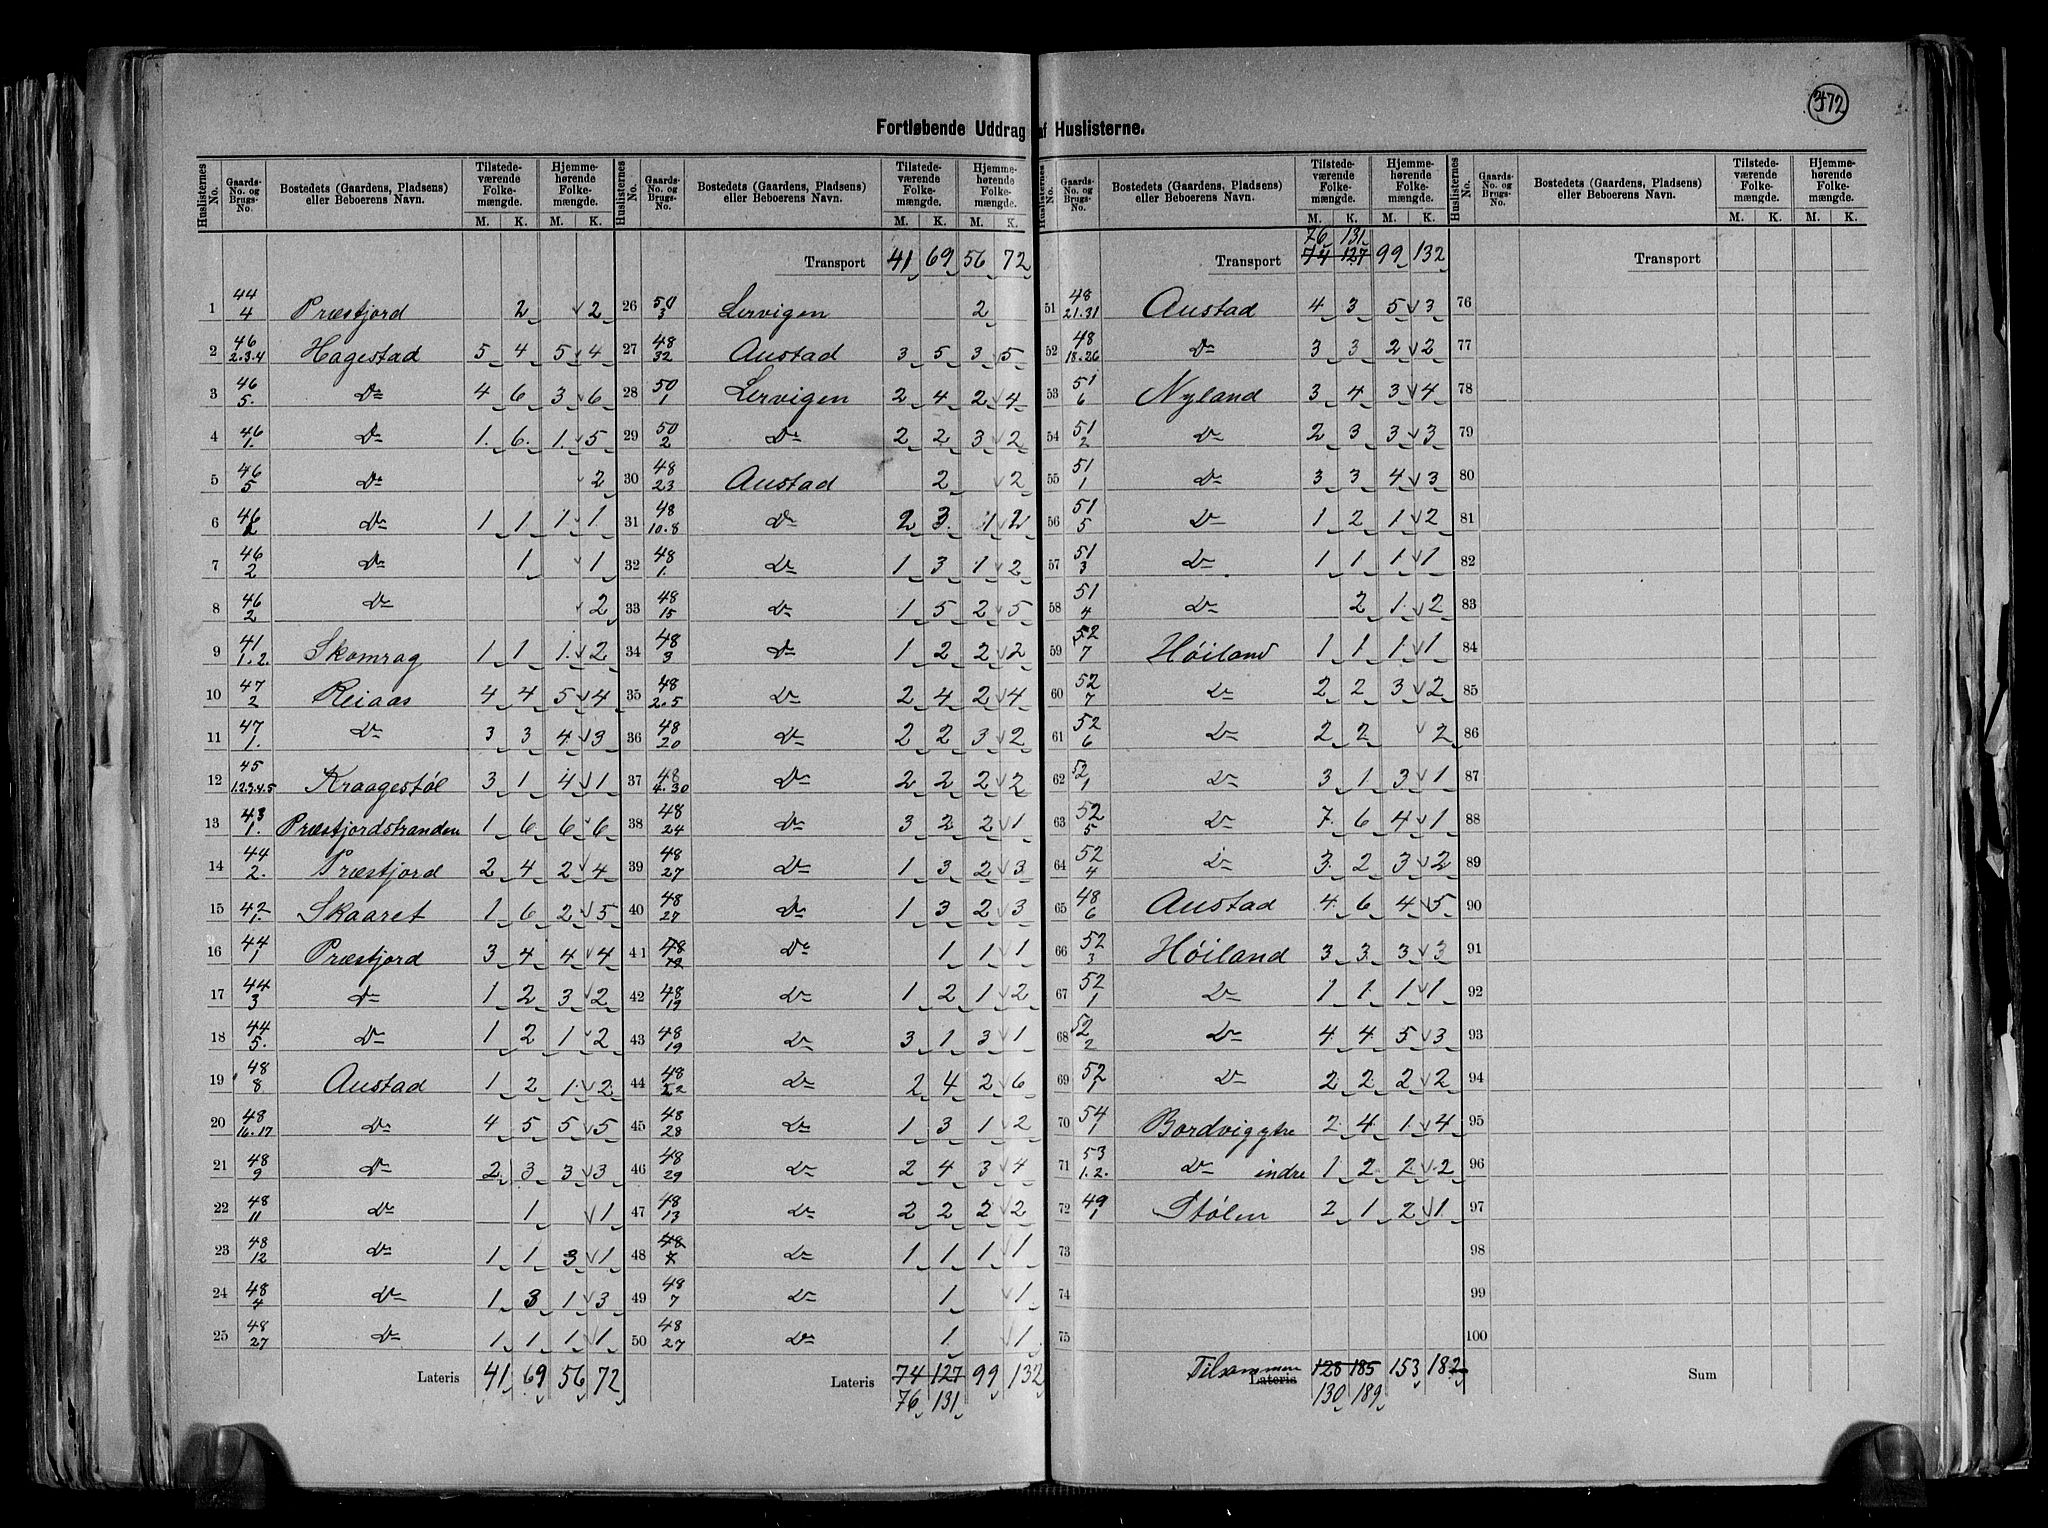 372
Fortløbende Uddrag af Huslisterne.
Huslisternes No. | Gaards-No. og Brugs-No. | Bostedets (Gaardens, Pladsens) eller Beboerens Navn. | Tilstedeværende Folkemængde. M. K. | Hjemmehørende Folkemængde. M. K.
1 44/4 Præstfjord 2 2
2 46/2.3.4 Hagestad 5 4 5 4
3 46/5. Do 4 6 3 6
4 46/1. Do 1 6 1 5
5 46/5 Do 2
6 46/2 Do 1 1 1 1
7 46/2 Do 1 1
8 46/2 Do 2
9 41/1.2. Skomrag 1 1 1 2
10 47/2 Reiaas 4 4 5 4
11 47/1. Do 3 3 4 3
12 45/1.2.3.4.5 Kraagestøl 3 1 4 1
13 43/1. Præstfjordstranden 1 6 6 6
14 44/2. Præstfjord 2 4 2 4
15 42/1. Skaaret 1 6 2 5
16 44/1 Præstfjord 3 4 4 4
17 44/3 Do 1 2 3 2
18 44/5. Do 1 2 1 2
19 48/8 Austad 1 2 1 2
20 48/16.17 Do 4 5 5 5
21 48/9 Do 2 3 3 3
22 48/11 Do 1 1
23 48/12 Do 1 1 3 1
24 48/4 Do 1 3 1 3
25 48/27 Do 1 1 1 1
Lateris 41 69 56 72
Transport 41 69 56 72
26 50/3 Lervigen 2
27 48/32 Austad 3 5 3 5
28 50/1 Lervigen 2 4 2 4
29 50/2 Do 2 2 3 2
30 48/23 Austad 2 2
31 48/10.8 Do 2 3 1 2
32 48/1. Do 1 3 1 2
33 48/15 Do 1 5 2 5
34 48/3 Do 1 2 2 2
35 48/2.5 Do 2 4 2 4
36 48/20 Do 2 2 3 2
37 48/4.30 Do 2 2 2 2
38 48/24 Do 3 2 2 1
39 48/27 Do 1 3 2 3
40 48/27 Do 1 3 2 3
41 48/19 Do 1 1 1
42 48/19 Do 1 2 1 2
43 48/19 Do 3 1 3 1
44 48/22 Do 2 4 2 6
45 48/28 Do 1 3 1 2
46 48/29 Do 2 4 3 4
47 48/13 Do 2 2 2 2
48 48/7 Do 1 1 1 1
49 48/7 Do 1 1
50 48/27 Do 1 1
Lateris 74 127 99 132
76 131
76 131
Transport 74 127 99 132
51 48/21.31 Austad 4 3 5 3
52 48/18.26 Do 3 3 2 2
53 51/6 Nyland 3 4 3 4
54 51/2 Do 2 3 3 3
55 51/1 Do 3 3 4 3
56 51/5 Do 1 2 1 2
57 51/3 Do 1 1 1 1
58 51/4 Do 2 1 2
59 52/7 Høiland 1 1 1 1
60 52/7 Do 2 2 3 2
61 52/6 Do 2 2 2
62 52/1 Do 3 1 3 1
63 52/5 Do 7 6 4 1
64 52/4 Do 3 2 3 2
65 48/6 Austad 4 6 4 5
66 52/3 Høiland 3 3 3 3
67 52/1 Do 1 1 1 1
68 52/2 Do 4 4 5 3
69 52/1 Do 2 2 2 2
70 54/1 Bordvig ytre 2 4 1 4
71 53/1.2. Do indre 1 2 2 2
72 49/1 Stølen 2 1 2 1
73
74
75
Tilsammen Lateris 128 185 153 182
130 189
Transport
76
77
78
79
80
81
82
83
84
85
86
87
88
89
90
91
92
93
94
95
96
97
98
99
100
Sum